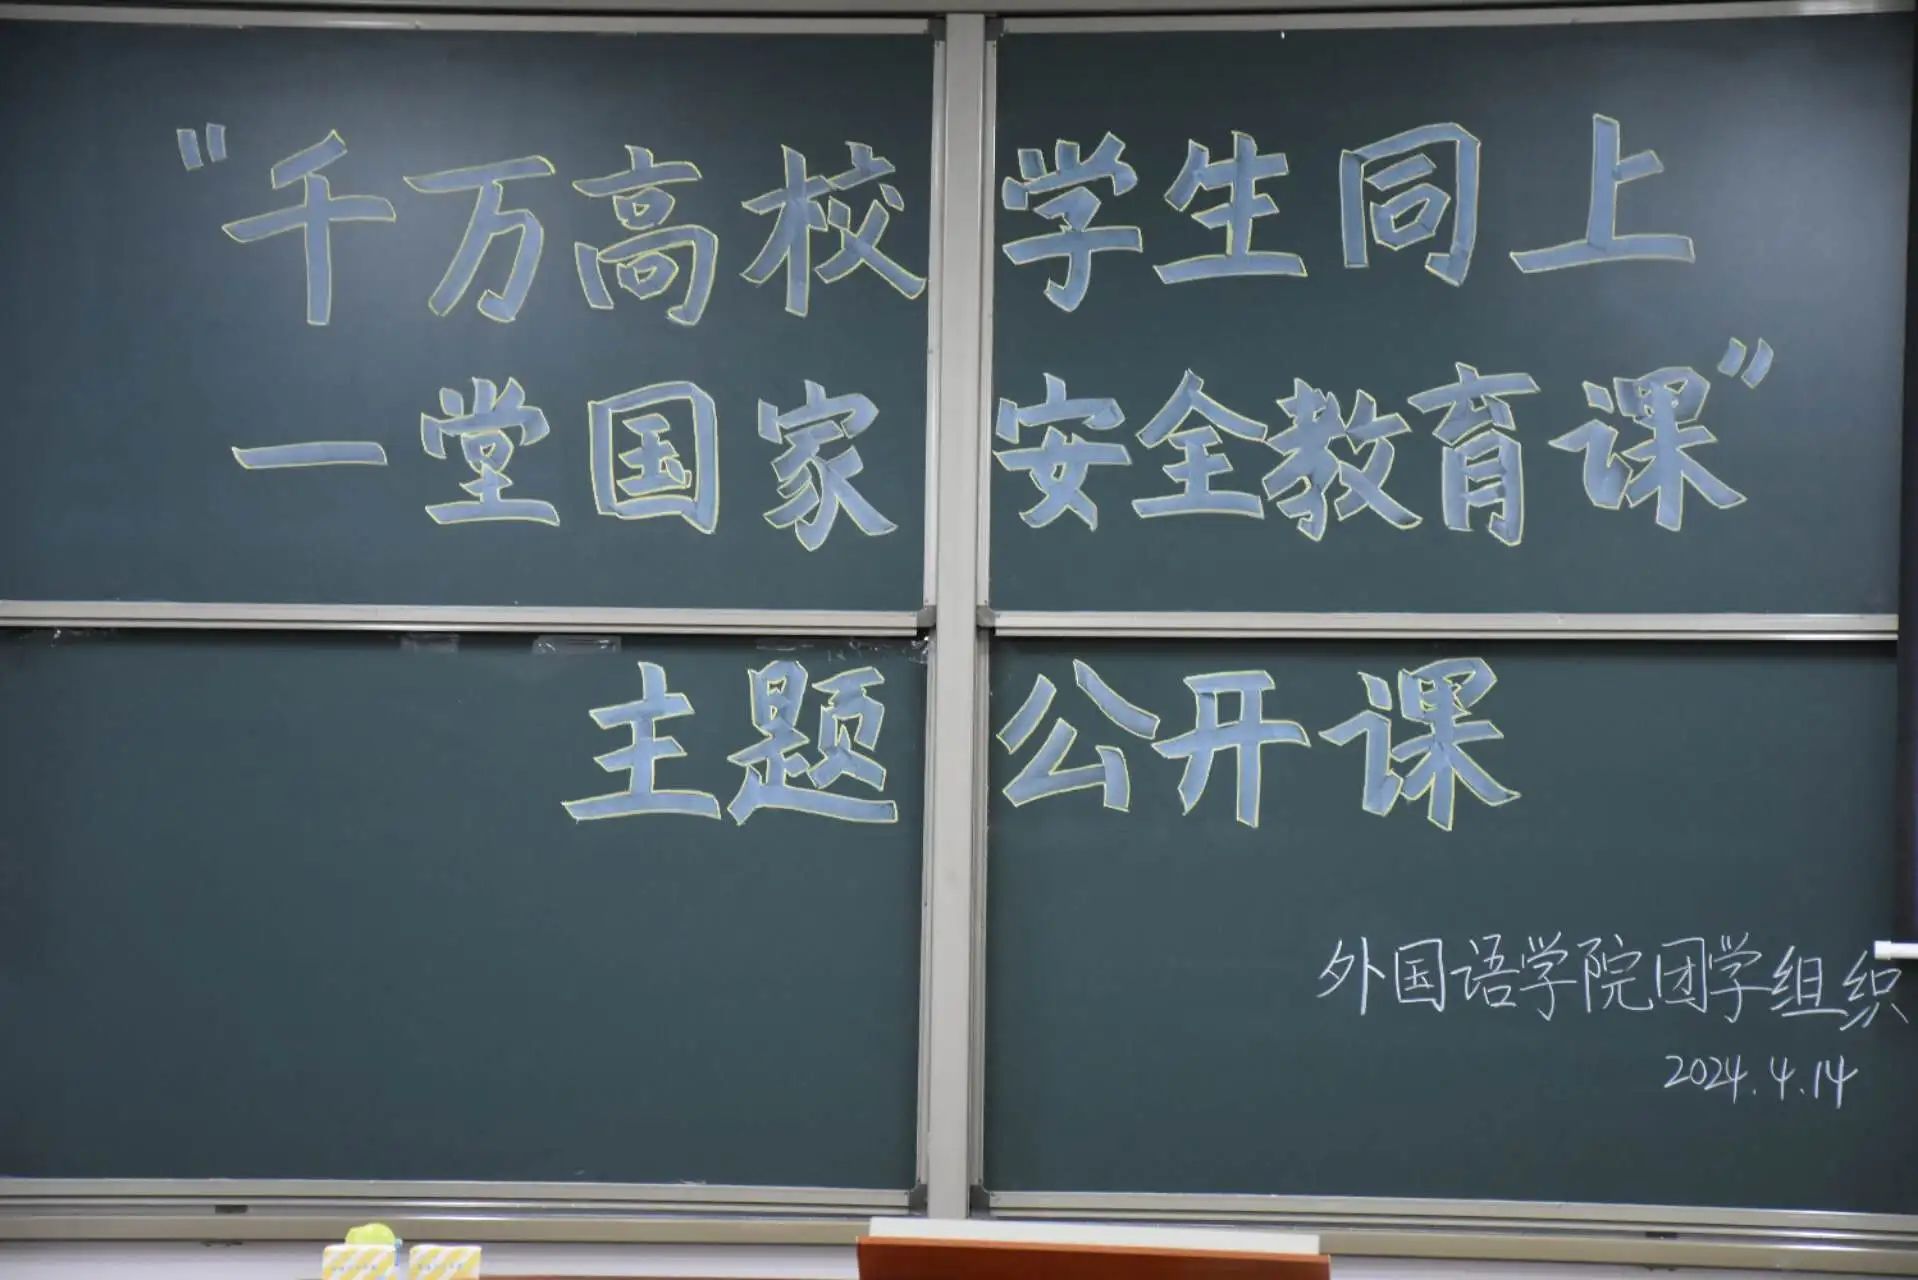 “千万高校学生同上
一堂国家安全教育课”
主题公开课
外国语学院团学组织
2024.4.14